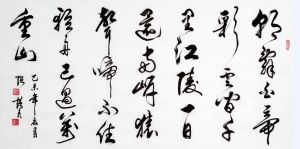 朝辭白帝
彩云間千
里江陵一日
還兩岸猿
聲啼不住
輕舟已過萬
重山
乙未年